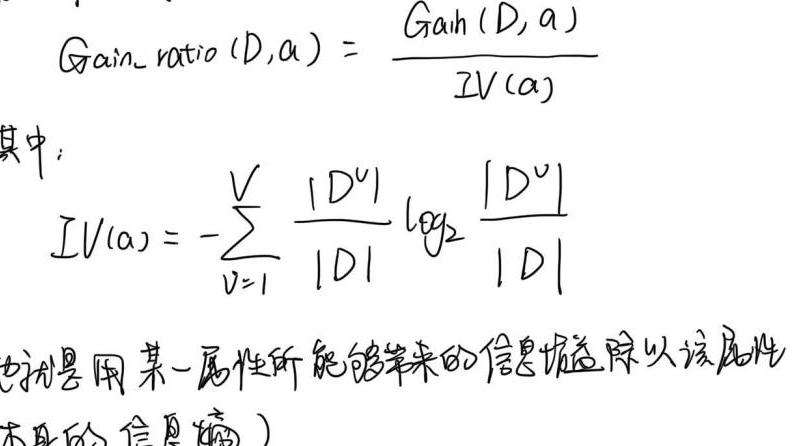 Gain_ratio(D,a) = Gain(D,a) / IV(a)
其中：
IV(a) = -∑_{v=1}^{V} |D^v| / |D| log₂ |D^v| / |D|
也就是用某一属性所能够带来的信息增益除以该属性
本身的信息熵）